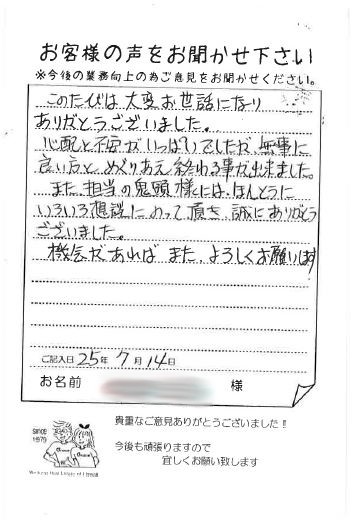 お客様の声をお聞かせ下さい
※今後の業務向上の為ご意見をお聞かせください。
このたびは大変お世話になり
ありがとうございました。
心配と不安がいっぱいでしたが無事に
良い方とめぐりあえ終わる事が出来ました。
また、担当の鬼頭様には、ほんとうに
いろいろ相談にのって頂き、誠にありがとう
ございました。
機会があればまた、よろしくお願います
ご記入日 25年 7月 14日
お名前 様
貴重なご意見ありがとうございました!!
今後も頑張りますので
宜しくお願い致します
since
1979